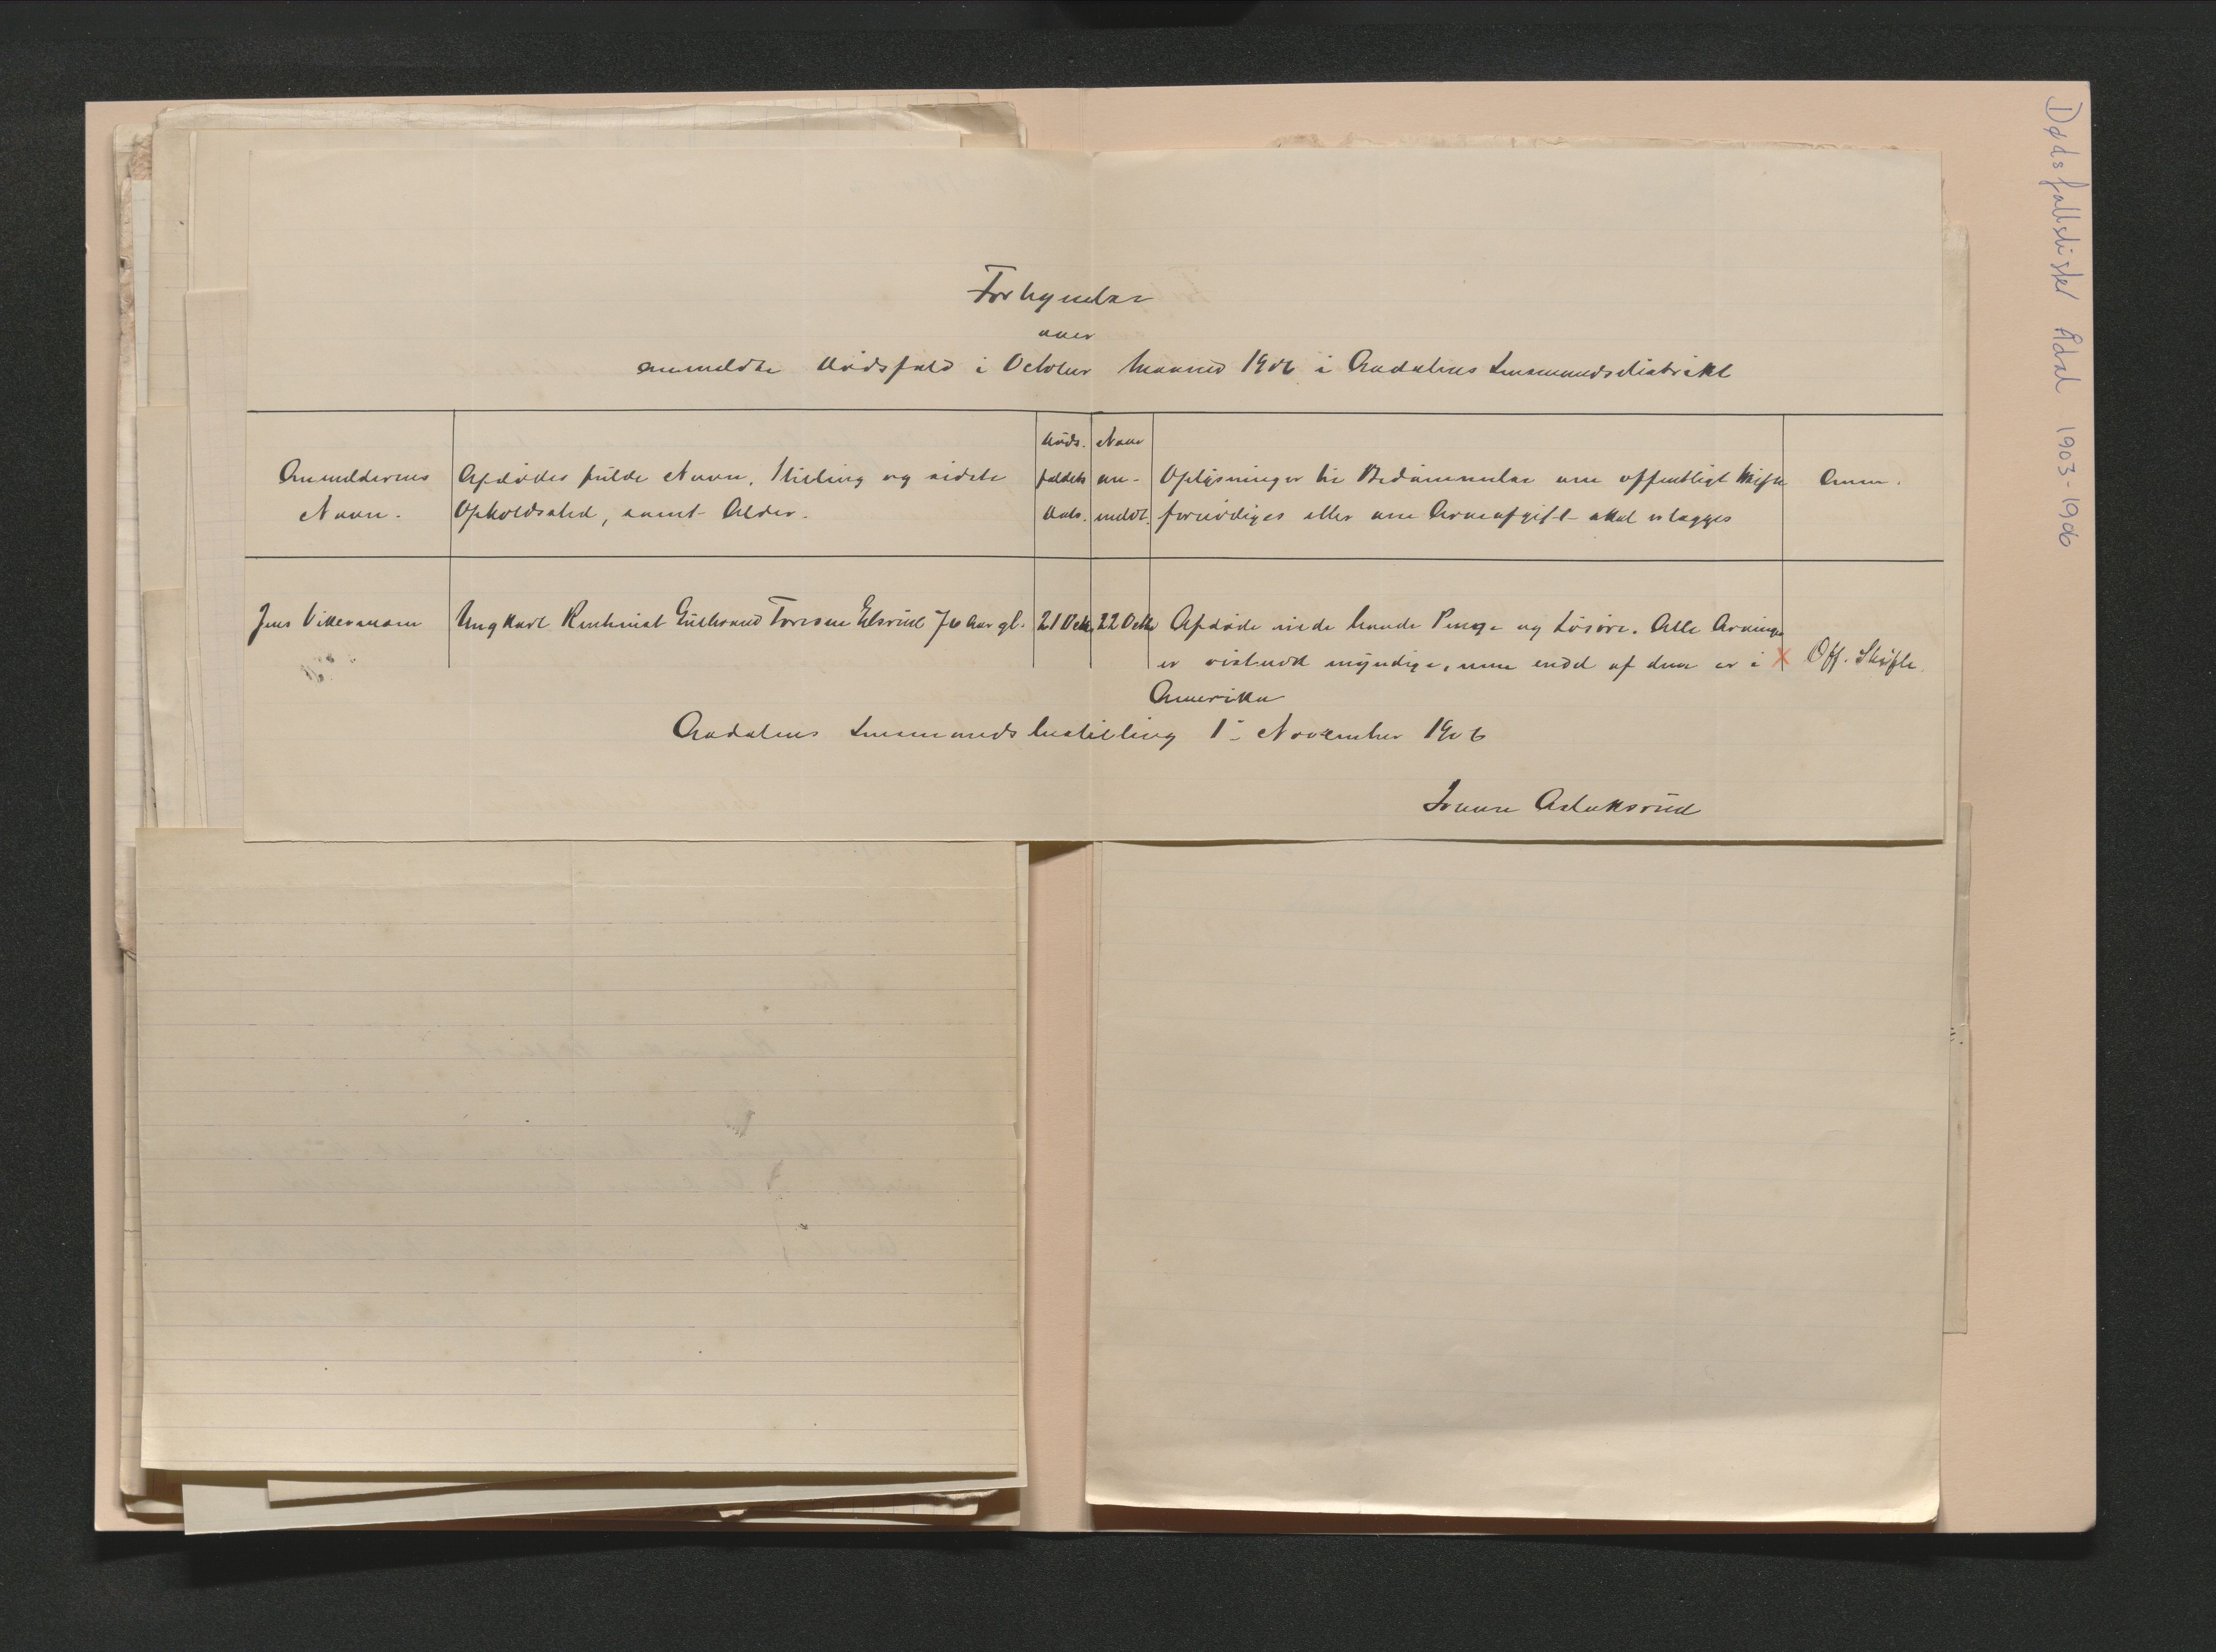 Fortegnelse
over
anmeldte Dødsfald i October Maaned 1906 i Aadalens Lensmandsdistrikt
Anmelderens
Navn.
Afdødes fulde Navn, Stilling og sidste
Opholdssted, samt Alder.
Døds-
faldets
Dato.
Naar
an-
meldt.
Oplysninger til Bedømmelse om offentligt Skifte
fornødiges eller om Arveafgift skal erlægges
Anm.
Jens Vikersmoen
Ungkarl Rentenist Gulbrand Toresen Elsrud 70 Aar gl.
21 Octb.
22 Octb.
Afdøde eiede baade Penge og Løsøre. Alle Arvinger
er vistnok myndige, men endel af dem er i
Amerika
X Off. Skifte.
Aadalens Lensmandsbestilling 1ste November 1906
Iver Aslaksrud
Dødsfallslister Ådal 1903-1906